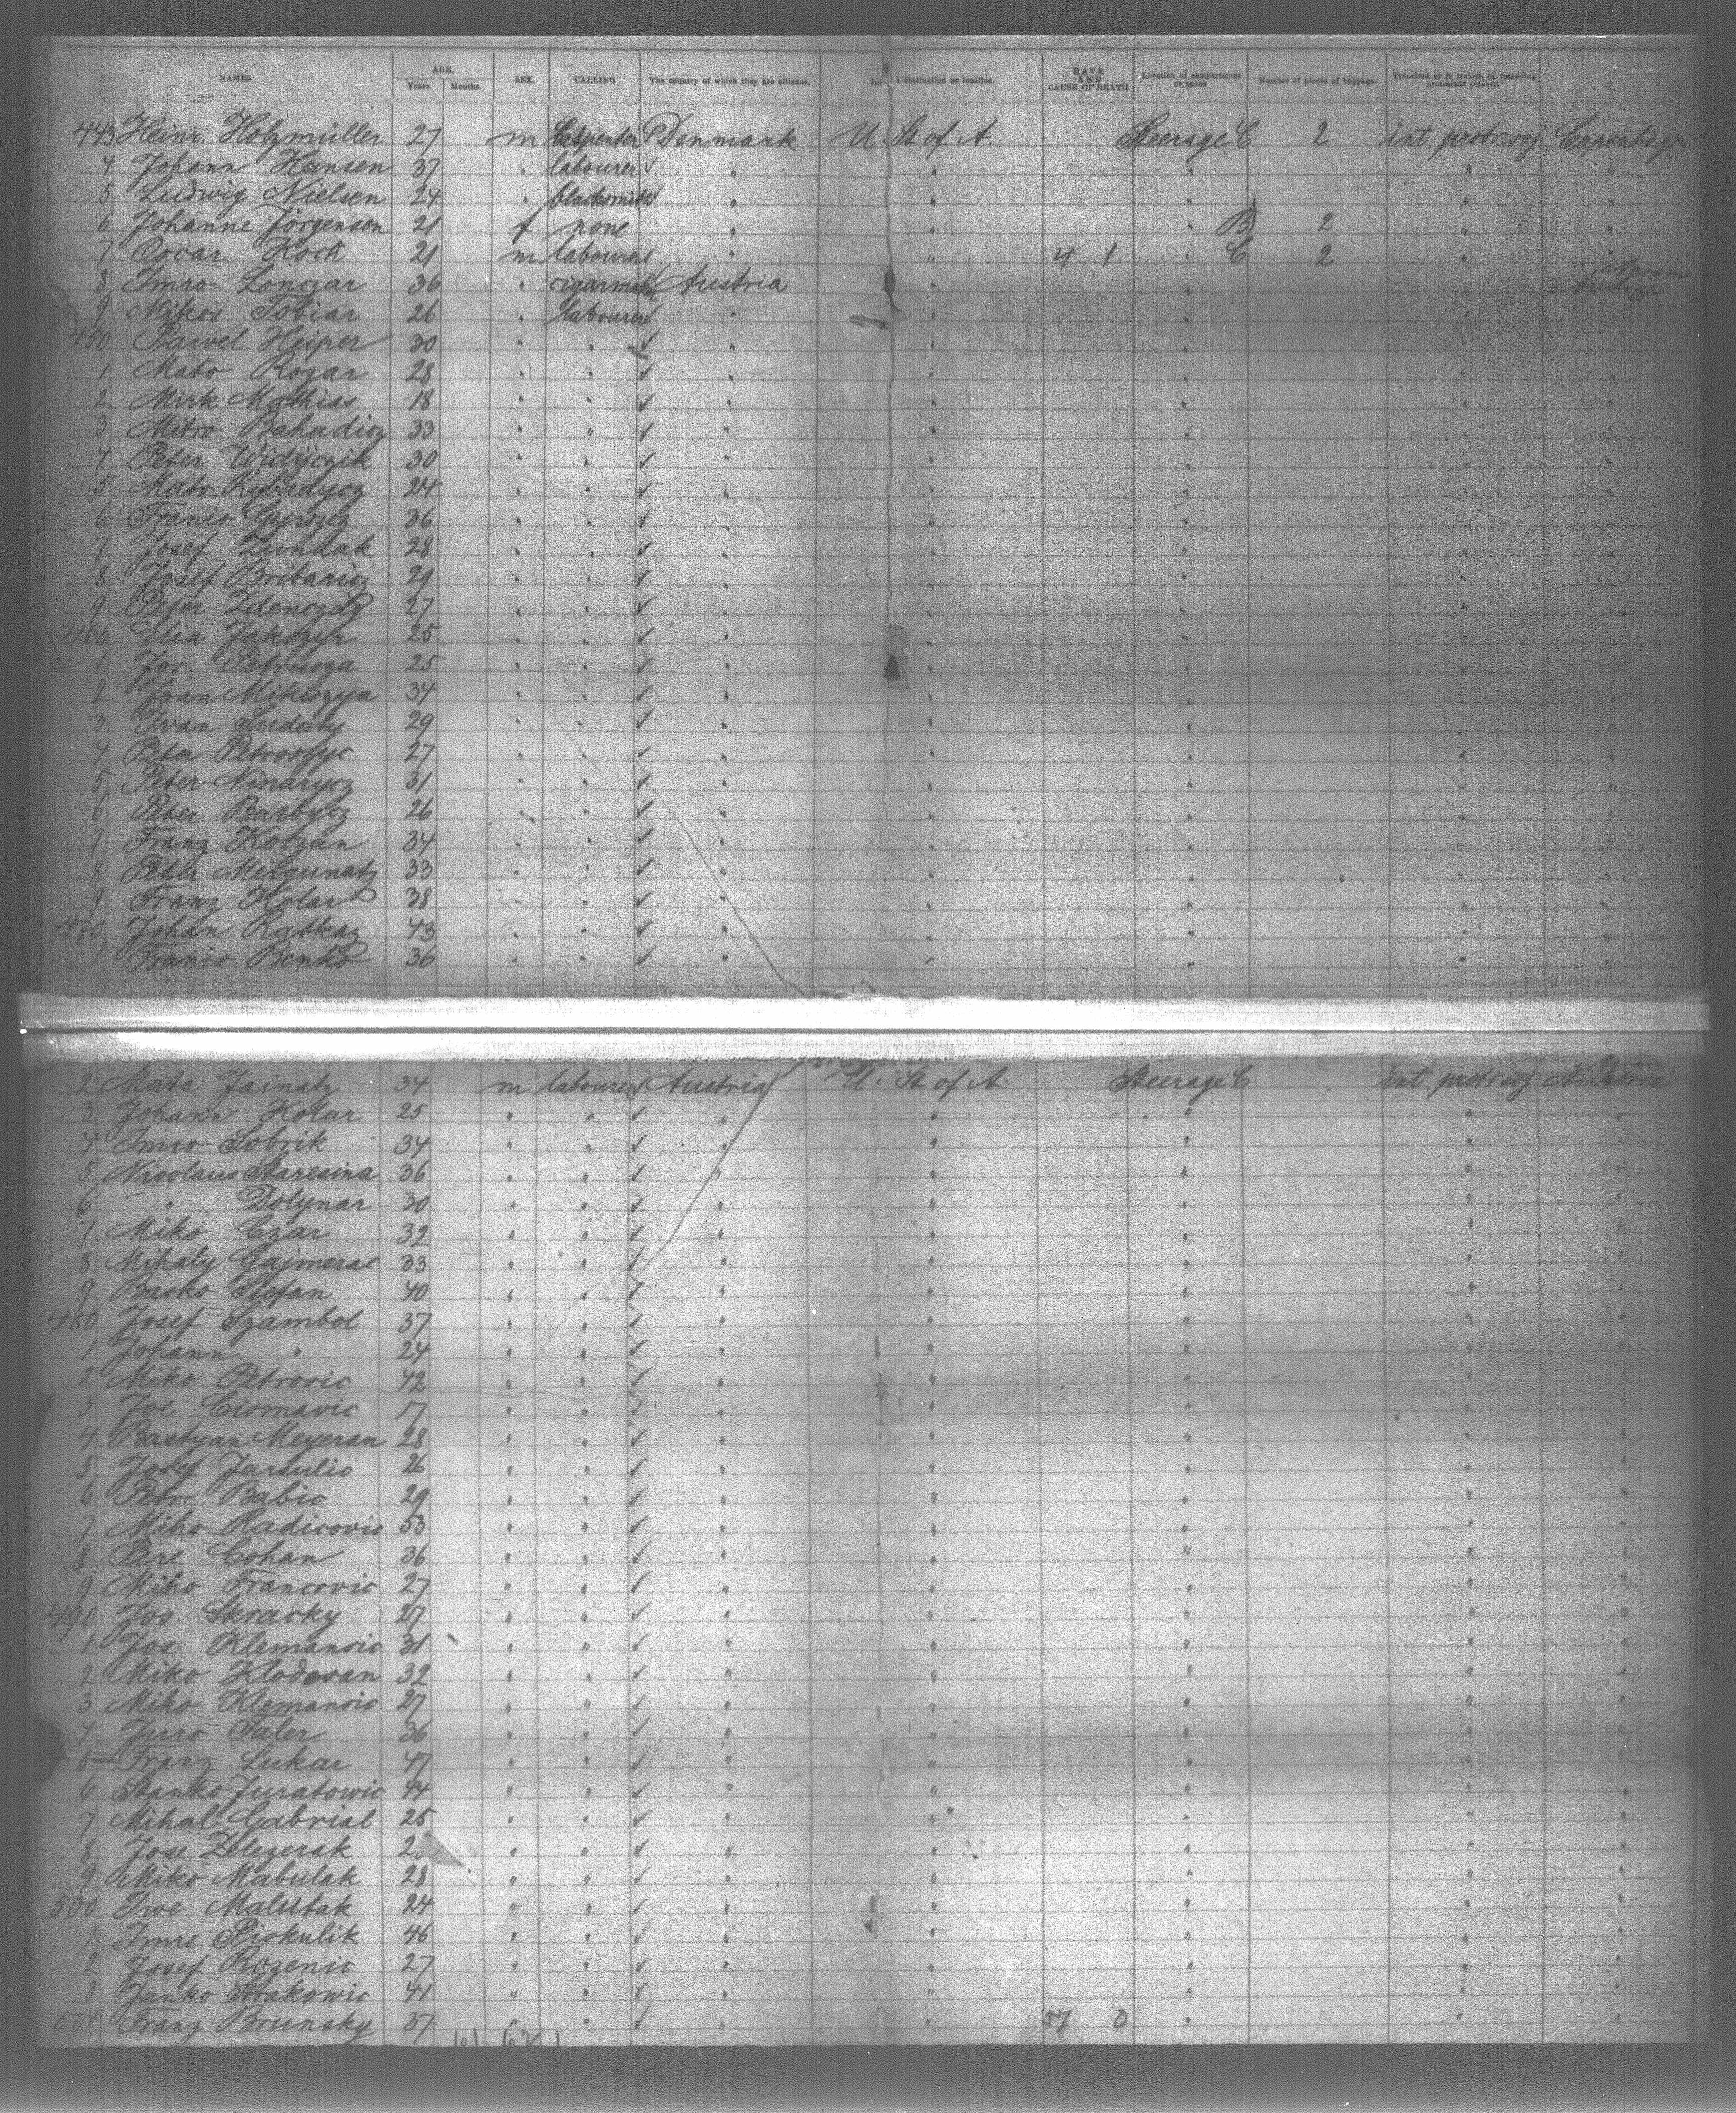 NAMES AGE. Years. Months. SEX. CALLING The country of which they are citizens. destination or location. DATE AND CAUSE OF DEATH Location of compartment or space Number of pieces of baggage. Transient or in transit, or intending protracted sojourn.
443 Heinr. Holzmüller 27 m Carpenter Denmark U. St of A. Steerage C 2 int. protr soj Coppenhagen
4 Johann Hansen 37 " labourer " " " " "
5 Ludwig Nielsen 24 " blacksmith " " " " "
6 Johanne Jörgensen 21 f none " " " B 2 " "
7 Oscar Koch 21 m labourer " " 4 1 " C 2 " "
8 Imro Lonczar 36 " cigarmaker Austria " " " Agram Austria
9 Mikos Tobiar 26 " labourer " " " " "
450 Pawel Heiper 30 " " " " " " "
1 Mato Rozar 28 " " " " " " "
2 Mirk Mathias 18 " " " " " " "
3 Mitro Bahadicz 33 " " " " " " "
4 Peter Widyczik 30 " " " " " " "
5 Mato Rybadycz 24 " " " " " " "
6 Franio 36 " " " " " " "
7 Josef Zundak 28 " " " " " " "
8 Josef Bribaricz 29 " " " " " " "
9 Peter 27 " " " " " " "
460 Elia 25 " " " " " " "
1 Jos. 25 " " " " " " "
2 Ivan 34 " " " " " " "
3 Ivan 29 " " " " " " "
4 Peter 27 " " " " " " "
5 Peter Ninarycz 31 " " " " " " "
6 Peter Barbycz 26 " " " " " " "
7 Franz Koczan 34 " " " " " " "
8 Peter Mergunatz 33 " " " " " " "
9 Franz Kolar 38 " " " " " " "
470 Johan Ratkaz 43 " " " " " " "
1 Franio Benko 36 " " " " " " "
2 Mata Jainatz 34 m labourer Austria U. St of A. Steerage C int. protr soj Austria
3 Johann Kolar 25 " " " " " " "
4 Imro Sobrik 34 " " " " " " "
5 Nicolaus Staresina 36 " " " " " " "
6 " Dolynar 30 " " " " " " "
7 Miko Czar 32 " " " " " " "
8 Mihaly Gajmerac 33 " " " " " " "
9 Backo Stefan 40 " " " " " " "
480 Josef Szambol 37 " " " " " " "
1 Johann " 24 " " " " " " "
2 Miko Petrovic 42 " " " " " " "
3 Joe 17 " " " " " " "
4 Bastyan Meyeran 28 " " " " " " "
5 Josef Jarsulic 26 " " " " " " "
6 Petr. Babic 29 " " " " " " "
7 Miho Radicovic 53 " " " " " " "
8 Pere Cohan 36 " " " " " " "
9 Miho Francovic 27 " " " " " " "
490 Jos. Skracky 27 " " " " " " "
1 Jos. Klemansic 31 " " " " " " "
2 Miko Klodosan 32 " " " " " " "
3 Miho Klemansic 27 " " " " " " "
4 Juro Faler 36 " " " " " " "
5 Franz Lukar 47 " " " " " " "
6 Stanko Juratowic 44 " " " " " " "
7 Mihal Gabrial 25 " " " " " " "
8 Jose Zelezerak 2 " " " " " " "
9 Miko Mabulak 28 " " " " " " "
500 Iwe 24 " " " " " " "
1 Imre Piskulik 46 " " " " " " "
2 Josef Rozenic 27 " " " " " " "
3 Janko Strakowic 41 " " " " " " "
504 Franz Brunsky 37 " " " " 57 0 " " "